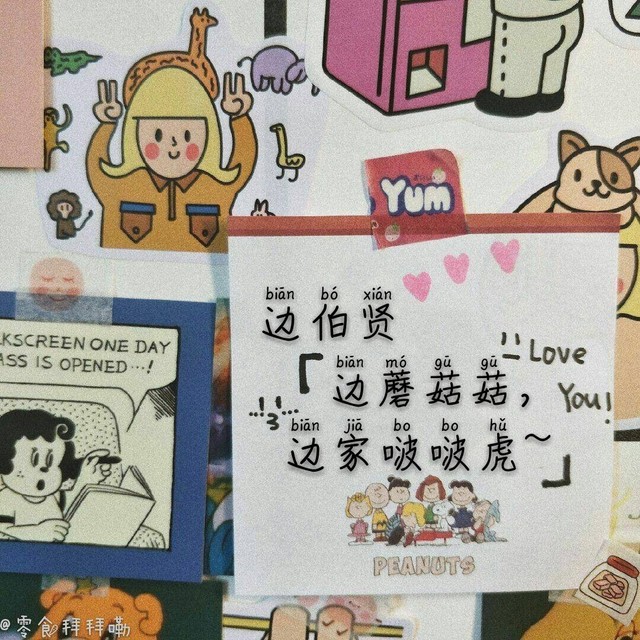 Yum
biān bó xián
边伯贤
biān mó gū gū
「边蘑菇菇,
biān jiā bo bo hǔ
边家啵啵虎~」
Love
You!
PEANUTS
KSCREEN ONE DAY
ASS IS OPENED...!
@零創拜拜嘞